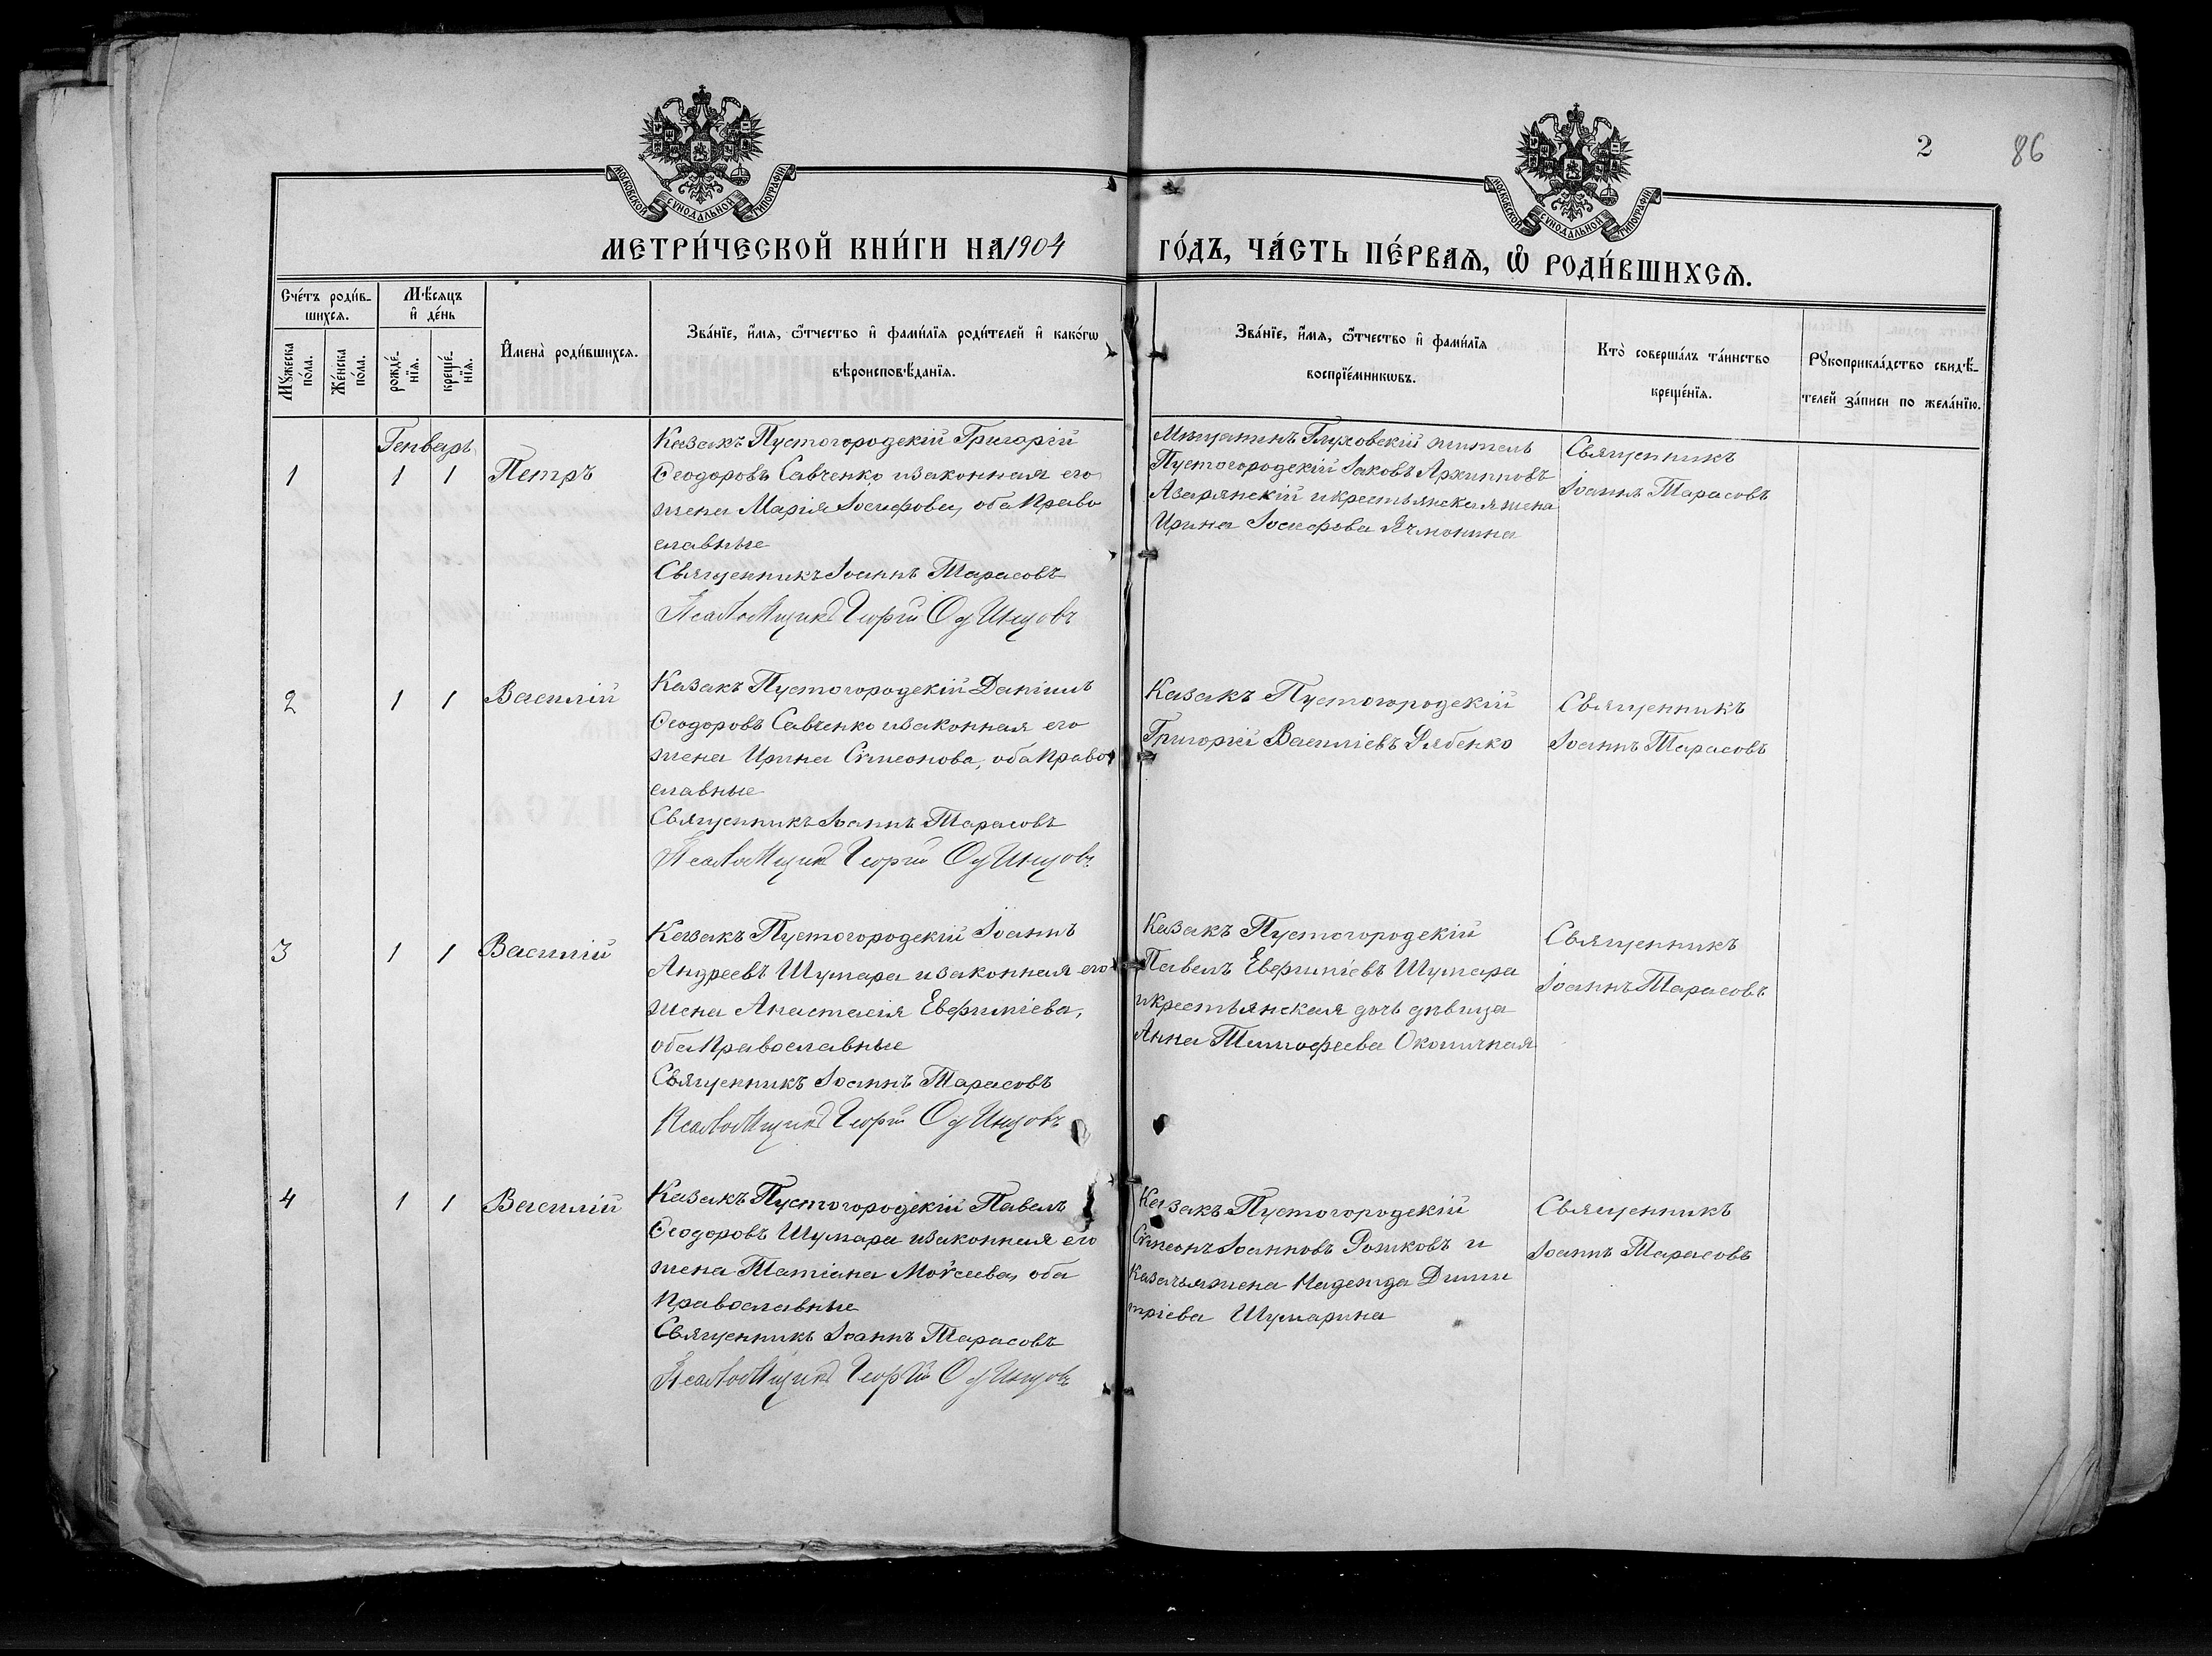 2
86
МОСКОВСКОЙ СѴНОДАЛЬНОЙ ТИПОГРАФІИ
МОСКОВСКОЙ СѴНОДАЛЬНОЙ ТИПОГРАФІИ
МЕТРИ́ЧЕСКОЙ КНИ́ГИ НА 1904 ГО́ДЪ, ЧА́СТЬ ПЕ́РВАѦ, Ѡ҆ РОДИ́ВШИХСѦ.
Сче́тъ роди́в-
шихсѧ.
Мѣ́сѧцъ
и҆ де́нь
Мꙋ́жеска
по́ла.
Же́нска
по́ла.
рожде́-
нїѧ.
креще́-
нїѧ.
И҆мена̀ роди́вшихсѧ.
Зва́нїе, и҆́мѧ, ѻ҆́тчество и҆ фами́лїѧ роди́телей и҆ како́гѡ
вѣроисповѣ́данїѧ.
Зва́нїе, и҆́мѧ, ѻ҆́тчество и҆ фами́лїѧ
воспрїе́мникѡвъ.
Кто̀ соверша́лъ та́инство
креще́нїѧ.
Рꙋкоприкла́дство свидѣ́-
телей за́писи по жела́нїю.
Генварь
1
1
1
Петръ
Казакъ Пустогородскій Григорій
Ѳеодоровъ Савченко и законная его
жена Марія Іосифова, оба право
славные
Священникъ Іоаннъ Тарасовъ
Псаломщикъ Георгій Одинцовъ
Мѣщанинъ Глуховскій житель
Пустогородскій Іаковъ Архиповъ
Азарянскій и крестьянская жена
Ирина Іосифова Ячмонина
Священникъ
Іоаннъ Тарасовъ
2
1
1
Василій
Казакъ Пустогородскій Даніилъ
Ѳеодоровъ Савченко и законная его
жена Ирина Симеонова, оба право
славные
Священникъ Іоаннъ Тарасовъ
Псаломщикъ Георгій Одинцовъ
Казакъ Пустогородскій
Григорій Василіевъ Рябенко
Священникъ
Іоаннъ Тарасовъ
3
1
1
Василій
Казакъ Пустогородскій Іоаннъ
Андреевъ Шумара и законная его
жена Анастасія Евфиміева,
оба православные
Священникъ Іоаннъ Тарасовъ
Псаломщикъ Георгій Одинцовъ
Казакъ Пустогородскій
Павелъ Евфиміевъ Шумара
и крестьянская дочь дѣвица
Анна Тимофеева Околичная
Священникъ
Іоаннъ Тарасовъ
4
1
1
Василій
Казакъ Пустогородскій Павелъ
Ѳеодоровъ Шумара и законная его
жена Татіана Моѵсеева, оба
православные
Священникъ Іоаннъ Тарасовъ
Псаломщикъ Георгій Одинцовъ
Казакъ Пустогородскій
Симеонъ Іоанновъ Рожковъ и
казачья жена Надежда Дими
тріева Шумарина
Священникъ
Іоаннъ Тарасовъ